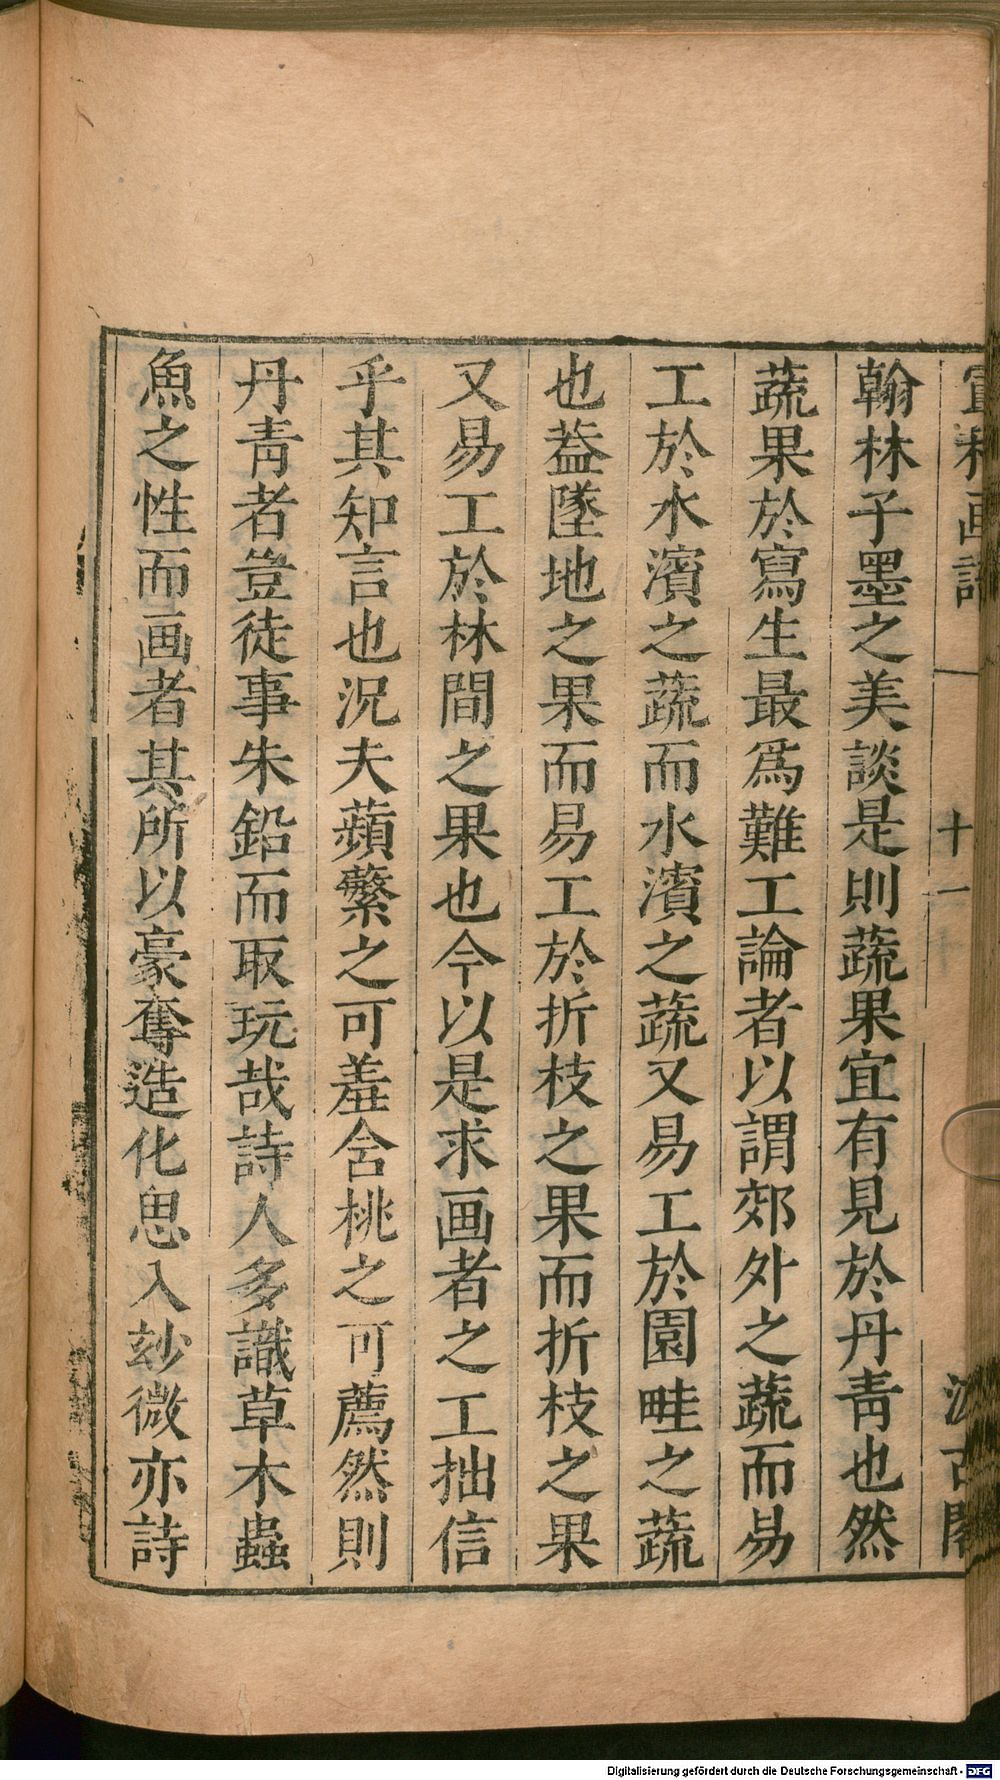 宣和画譜 十一 汲古閣
翰林子墨之美談是則蔬果宜有見於丹靑也然
蔬果於寫生最爲難工論者以謂郊外之蔬而易
工於水濱之蔬而水濱之蔬又易工於園畦之蔬
也葢墜地之果而易工於折枝之果而折枝之果
又易工於林間之果也今以是求画者之工拙信
乎其知言也況夫蘋蘩之可羞含桃之可薦然則
丹靑者豈徒事朱鉛而取玩哉詩人多識草木蟲
魚之性而画者其所以豪奪造化思入玅微亦詩
Digitalisierung gefördert durch die Deutsche Forschungsgemeinschaft - DFG